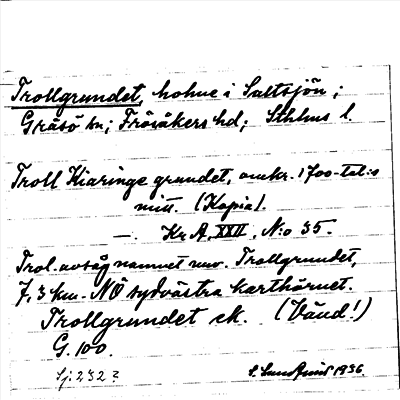 Trollgrundet, holme i Saltsjön;
Gräsö sn; Frösåkers hd; Sthlms l.
Troll Kiäringe grundet, omkr. 1700-tal:s
mitt. (Kopia).
—. Kr A, XXII, N:o 35.
Trol. avsåg namnet nuv. Trollgrundet,
7,3 km. NÖ sydvästra karthörnet.
Trollgrundet ek. (Vänd!)
G. 100.
Sj. 232?
S. 1936.